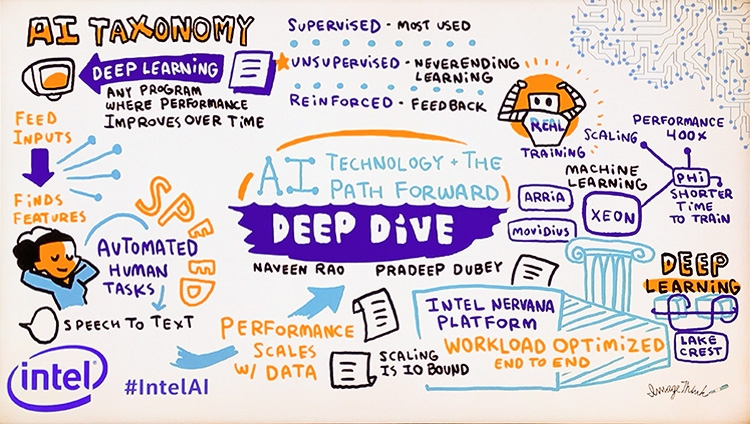 AI TAXONOMY
DEEP LEARNING
ANY PROGRAM
WHERE PERFORMANCE
IMPROVES OVER TIME
SUPERVISED - MOST USED
UNSUPERVISED - NEVERENDING
LEARNING
REINFORCED - FEEDBACK
REAL
TRAINING
FEED
INPUTS
FINDS
FEATURES
SPEED
AUTOMATED
HUMAN
TASKS
SPEECH TO TEXT
AI TECHNOLOGY + THE
PATH FORWARD
DEEP DIVE
NAVEEN RAO PRADEEP DUBEY
PERFORMANCE
400X
SCALING
MACHINE
LEARNING
PHi
SHORTER
TIME
TO TRAIN
ARRiA
XEON
MOViDiUS
DEEP
LEARNING
LAKE
CREST
INTEL NERVANA
PLATFORM
WORKLOAD OPTIMIZED
END TO END
PERFORMANCE
SCALES
W/ DATA
SCALING
IS IO BOUND
intel
#IntelAI
ImageThink